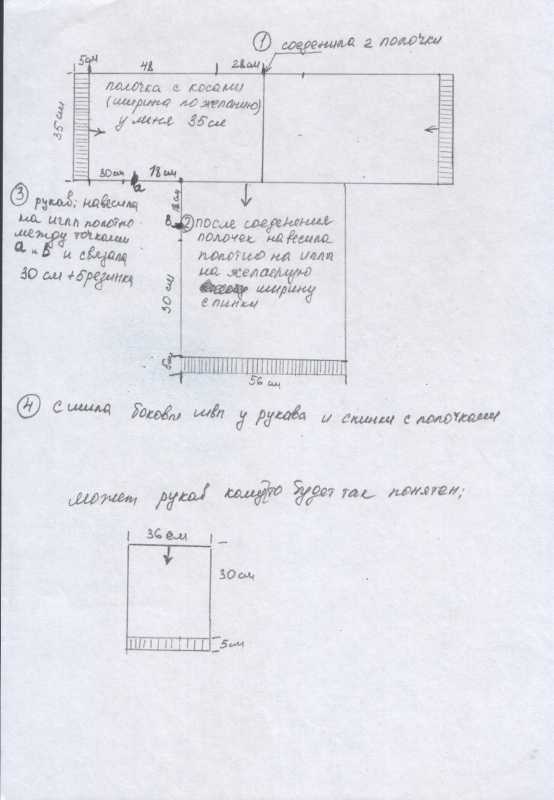 ① соеденила 2 полочки
5см 48 28см
полочка с косами
(ширина по желанию)
у меня 35см
35см
30см 18см
а
③ рукав; навесила
на иглы полотно
между точками
а и в и связала
30 см + 5 резинка
18см
в
② после соеденения
полочек навесила
полотно на иглы
на желаемую
ширину
спинки
30 см
56 см
④ сшила боковы швы у рукава и спинки с полочками
может рукав кому то будет так понятен;
36см
30см
5см